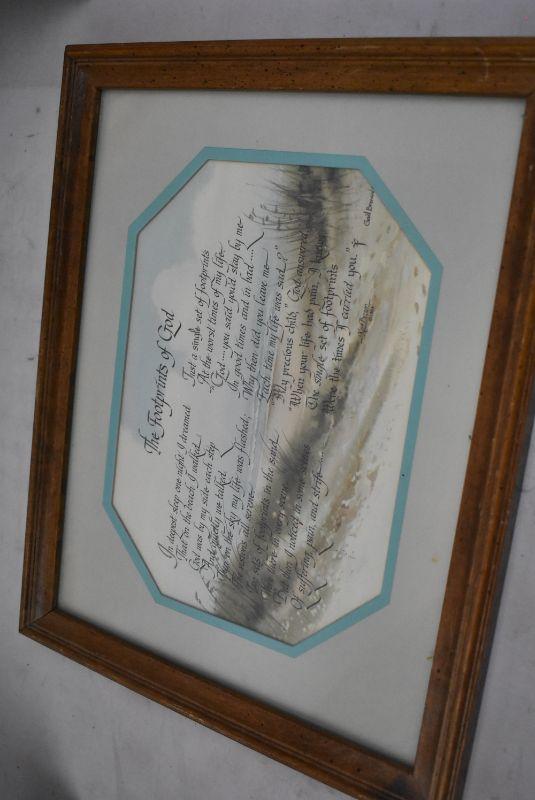 The Footprints of God
In deepest sleep one night I dreamed
That on the beach I walked
God was by my side each step
And quietly we talked.
Then on the sky my life was flashed;
The visions all serene
Two sets of footprints in the sand
Were there in every scene.
But then I noticed in some scenes
Of suffering, pain, and strife....
Just a single set of footprints
At the worst times of my life
"God.... you said you'd stay by me
In good times and in bad....
Why then did you leave me
Each time my life was sad?"
"My precious child," God answered
"When your life had pain, I
The single set of footprints
Were the times I carried you."
Gail